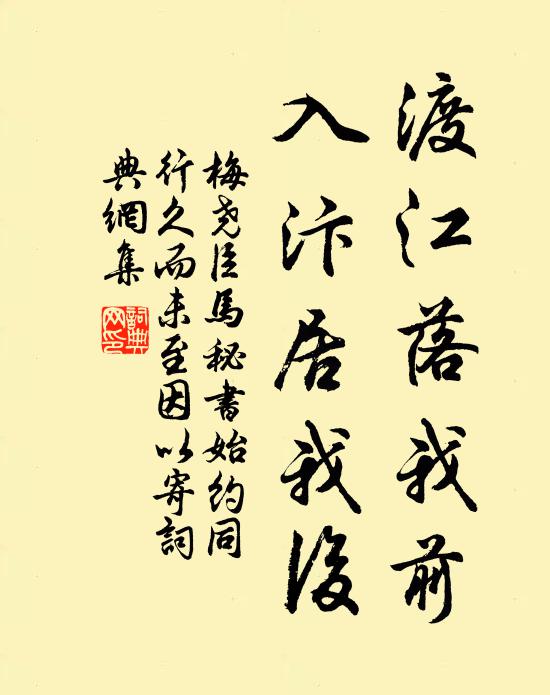 渡江落我前
入汴居我後
梅尧臣馬秘書始約同
行久而未至因以寄詞
典網集
詞典網印